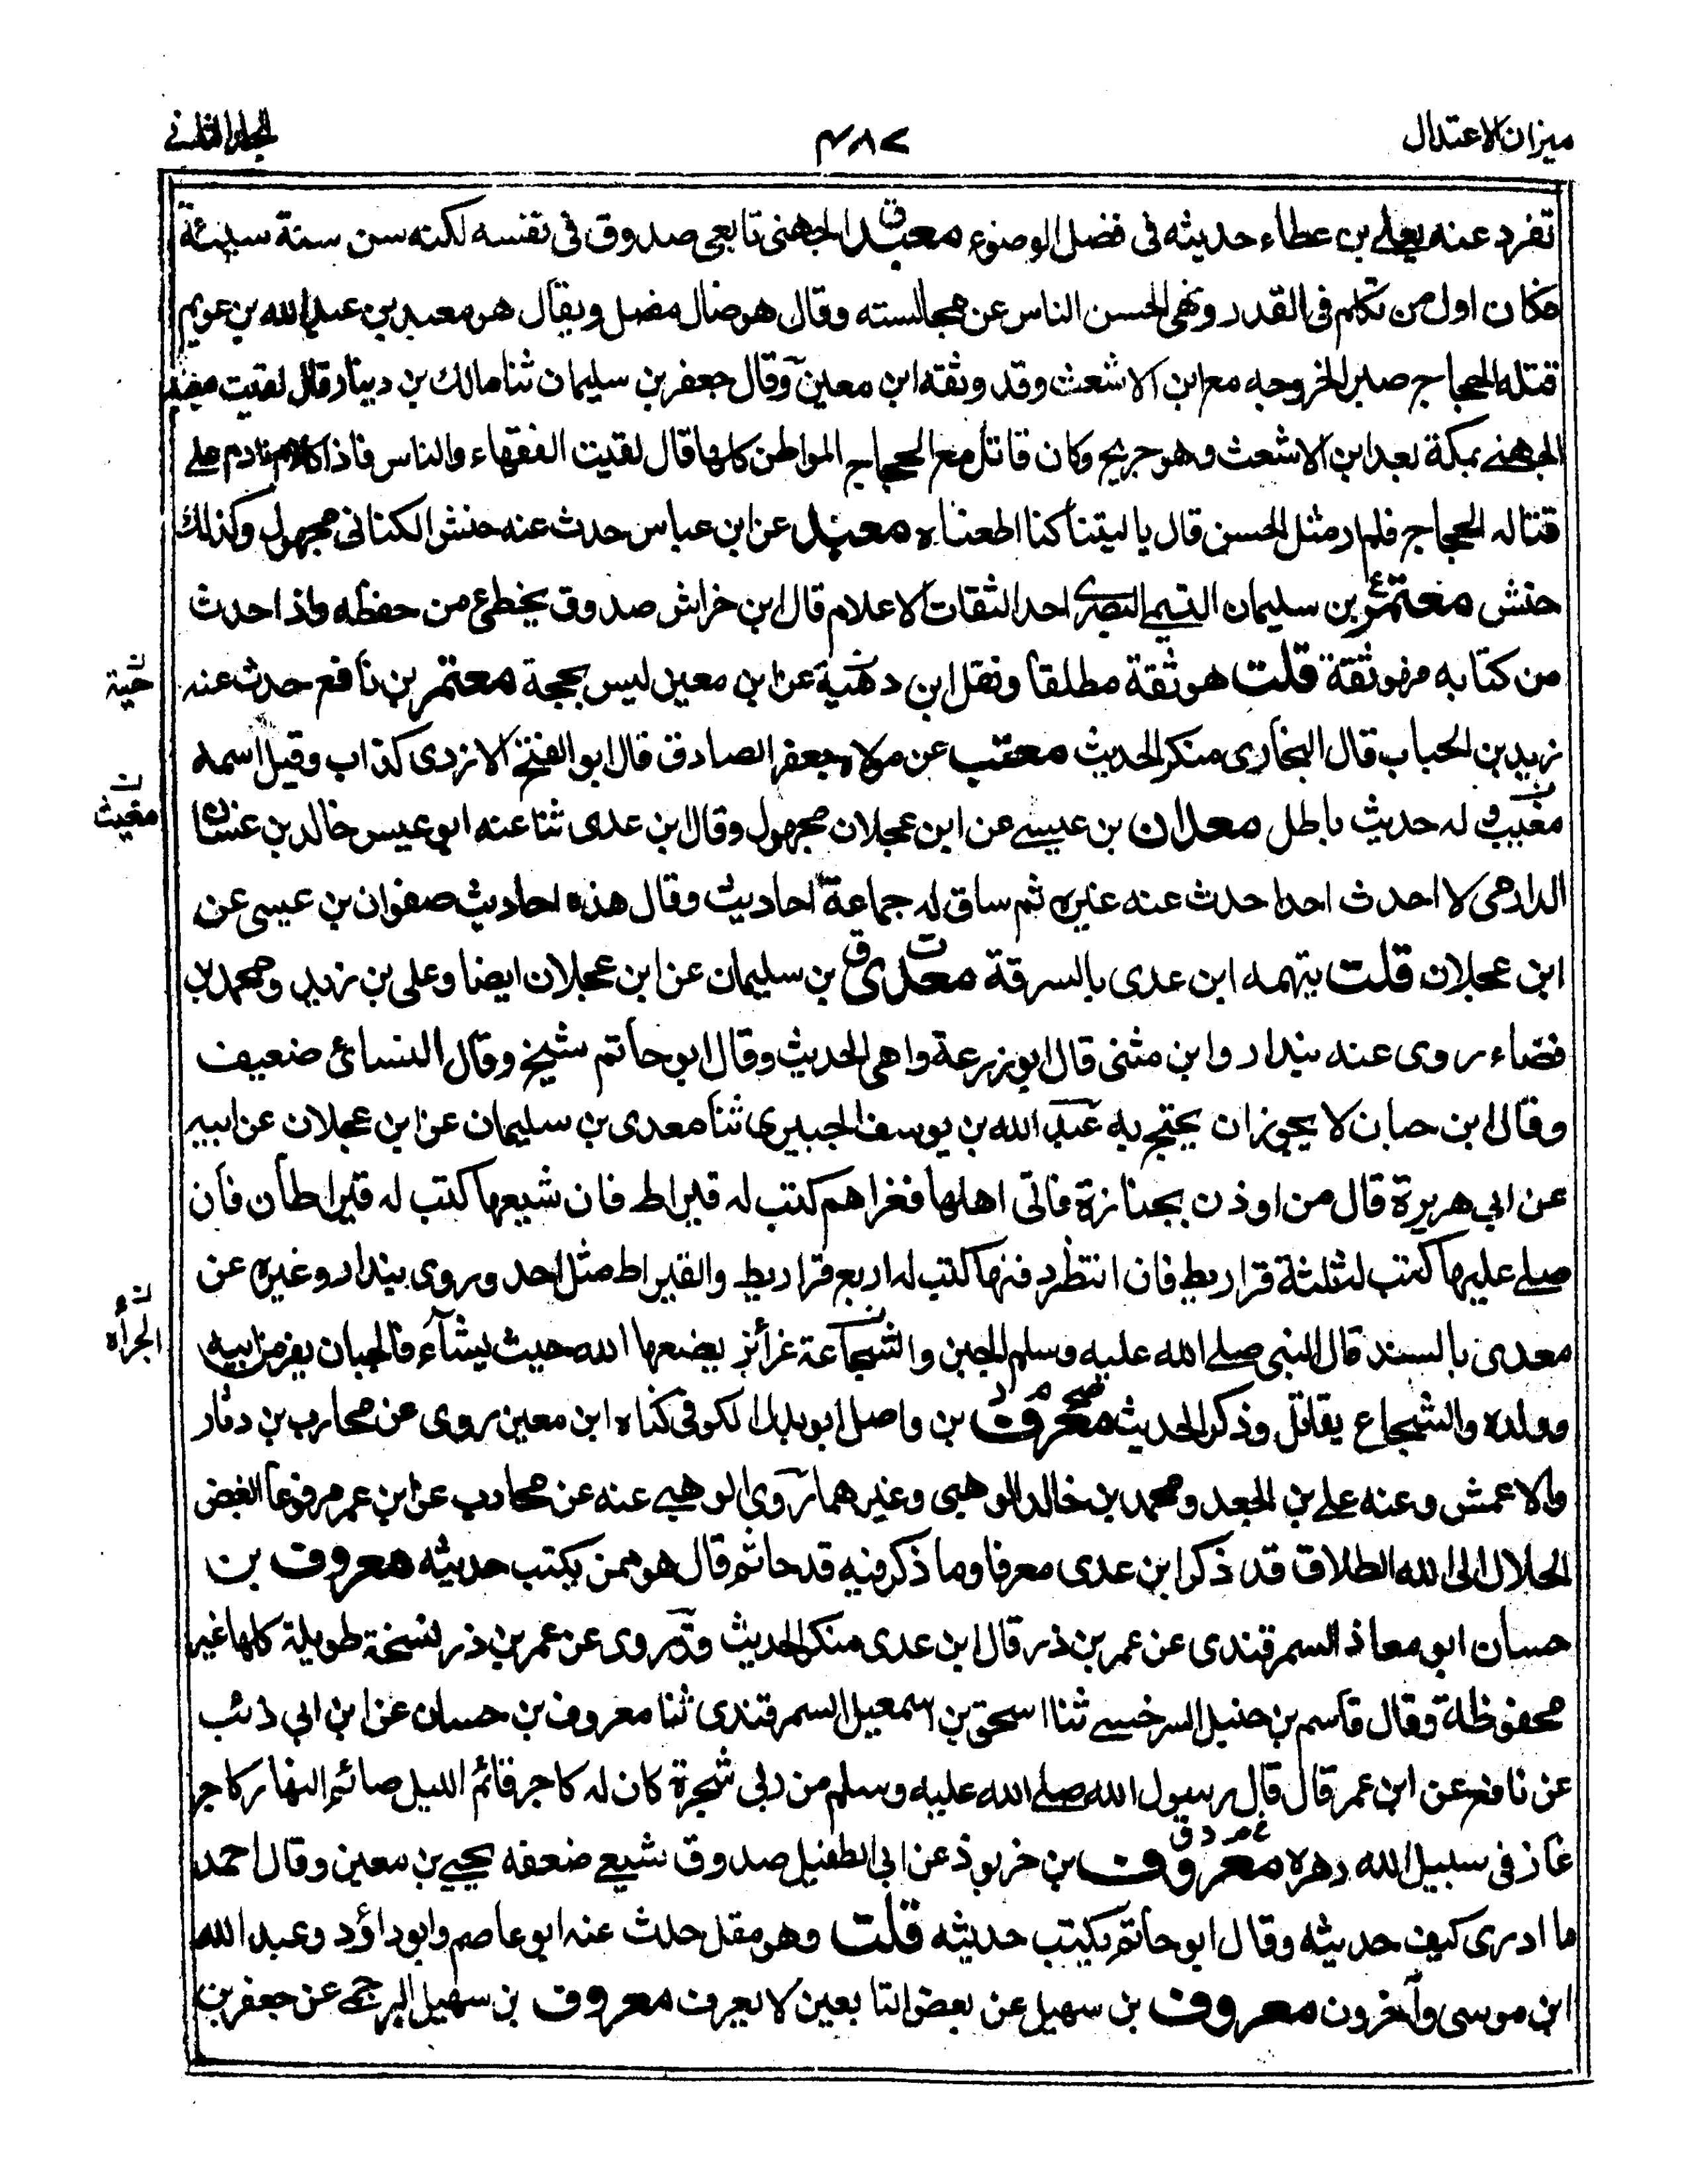 ميزان الاعتدال
٤٨٧
الجلد الثاني
تفرد عنه يعلى بن عطاء حديثه فى فضل الوضوء معبد الجهنى تابعى صدوق فى نفسه لكنه سن سنة سيئة
فكان اول من تكلم فى القدر ونهى الحسن الناس عن مجالسته وقال هو ضال مضل ويقال هو معبد بن عبد الله بن عويم
قتله الحجاج صبرا لخروجه مع ابن الاشعث وقد وثقه ابن معين وقال جعفر بن سليمان ثنا مالك بن دينار قال لقيت معبد
الجهنى بمكة بعد ابن الاشعث وهو جريح وكان قاتل مع الحجاج المواطن كلها قال لقيت الفقهاء والناس فاذا كلهم نادم على
قتاله الحجاج فلم ار مثل الحسن قال يا ليتنا كنا اطعناه معبد عن ابن عباس حدث عنه حنش الكنانى مجهول وكذلك
حنش معتمر ع بن سليمان التيمى البصرى احد الثقات الاعلام قال ابن خراش صدوق يخطئ من حفظه واذا حدث
من كتابه فهو ثقة قلت هو ثقة مطلقا ونقل ابن دهية عن ابن معين ليس بحجة معتمر بن نافع حدث عنه
زيد بن الحباب قال البخارى منكر الحديث معتب عن مولاه جعفر الصادق قال ابو الفتح الازدى كذاب وقيل اسمه
مغيب له حديث باطل معدان بن عيسى عن ابن عجلان مجهول وقال ابن عدى ثنا عنه ابو عيسى خالد بن غسان
الدارمى لا احدث احدا حدث عنه غيره ثم ساق له جماعة احاديث وقال هذه احاديث صفوان بن عيسى عن
ابن عجلان قلت يتهمه ابن عدى بالسرقة معدى ت ق بن سليمان عن ابن عجلان ايضا وعلى بن زيد ومحمد بن
فضاء روى عنه بندار وابن مثنى قال ابو زرعة واهى الحديث وقال ابو حاتم شيخ وقال النسائى ضعيف
وقال ابن حبان لا يجوز ان يحتج به عبد الله بن يوسف الجبيرى ثنا معدى بن سليمان عن ابن عجلان عن ابيه
عن ابي هريرة قال من اوذن بجنازة فاتى اهلها فعزاهم كتب له قيراط فان شيعها كتب له قيراطان فان
صلى عليها كتب له ثلثة قراريط فان انتظر دفنها كتب له اربع قراريط والقيراط مثل احد وروى بندار وغيره عن
معدى بالسند قال النبى صلى الله عليه وسلم الجبن والشجاعة غرائز يضعها الله حيث يشاء فالجبان يفر من ابيه
وولده والشجاع يقاتل وذكر الحديث معرف م د بن واصل ابو بدل الكوفى كناه ابن معين روى عن محارب بن دثار
والاعمش وعنه على بن الجعد ومحمد بن خالد الوهبى وغيرهما روى الوهبى عنه عن محارب عن ابن عمر مرفوعا ابغض
الحلال الى الله الطلاق قد ذكر ابن عدى معرفا وما ذكر فيه قدحا ثم قال هو ممن يكتب حديثه معروف بن
حسان ابو معاذ السمرقندى عن عمر بن ذر قال ابن عدى منكر الحديث وقد روى عن عمر بن ذر نسخة طويلة كلها غير
محفوظة وقال قاسم بن حنبل السرخسى ثنا اسحق بن اسمعيل السمرقندى ثنا معروف بن حسان عن ابن ابي ذئب
عن نافع عن ابن عمر قال قال رسول الله صلى الله عليه وسلم من ربى شجرة كان له كاجر قائم الليل صائم النهار كاجر
غاز فى سبيل الله دهره معروف خ م د ق بن خربوذ عن ابى الطفيل صدوق شيعى ضعفه يحيى بن معين وقال احمد
ما ادرى كيف حديثه وقال ابو حاتم يكتب حديثه قلت وهو مقل حدث عنه ابو عاصم وابو داؤد وعبد الله
ابن موسى وآخرون معروف بن سهيل عن بعض التابعين لا يعرف معروف بن سهيل البرجمى عن جعفر بن
حية
مغيث
الجرأه